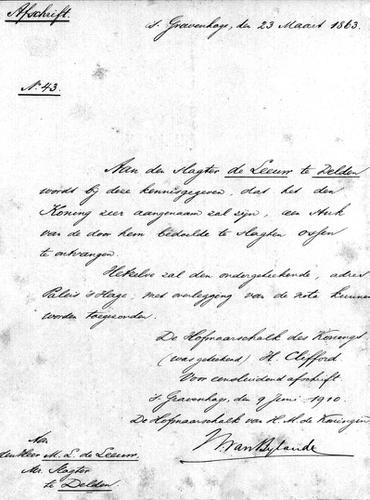 Afschrift.
's Gravenhage, den 23 Maart 1863.
No. 43.
Aan den Slagter de Leeuw te Delden
wordt bij deze kennisgegeven, dat het den
Koning zeer aangenaam zal zijn, een stuk
van de door hem bedoelde te slagten ossen
te ontvangen.
Hetzelve zal den ondergeteekende, adres
Paleis 's Hage, met overlegging van de nota kunnen
worden toegezonden.
De Hofmaarschalk des Konings
(was geteekend) H. Clifford.
Voor eensluidend afschrift.
's Gravenhage, den 9 Juni 1910.
De Hofmaarschalk van H. M. de Koningin
W. van Bylandt
Aan
den Heer M. L. de Leeuw.
Mr. Slagter
te Delden.